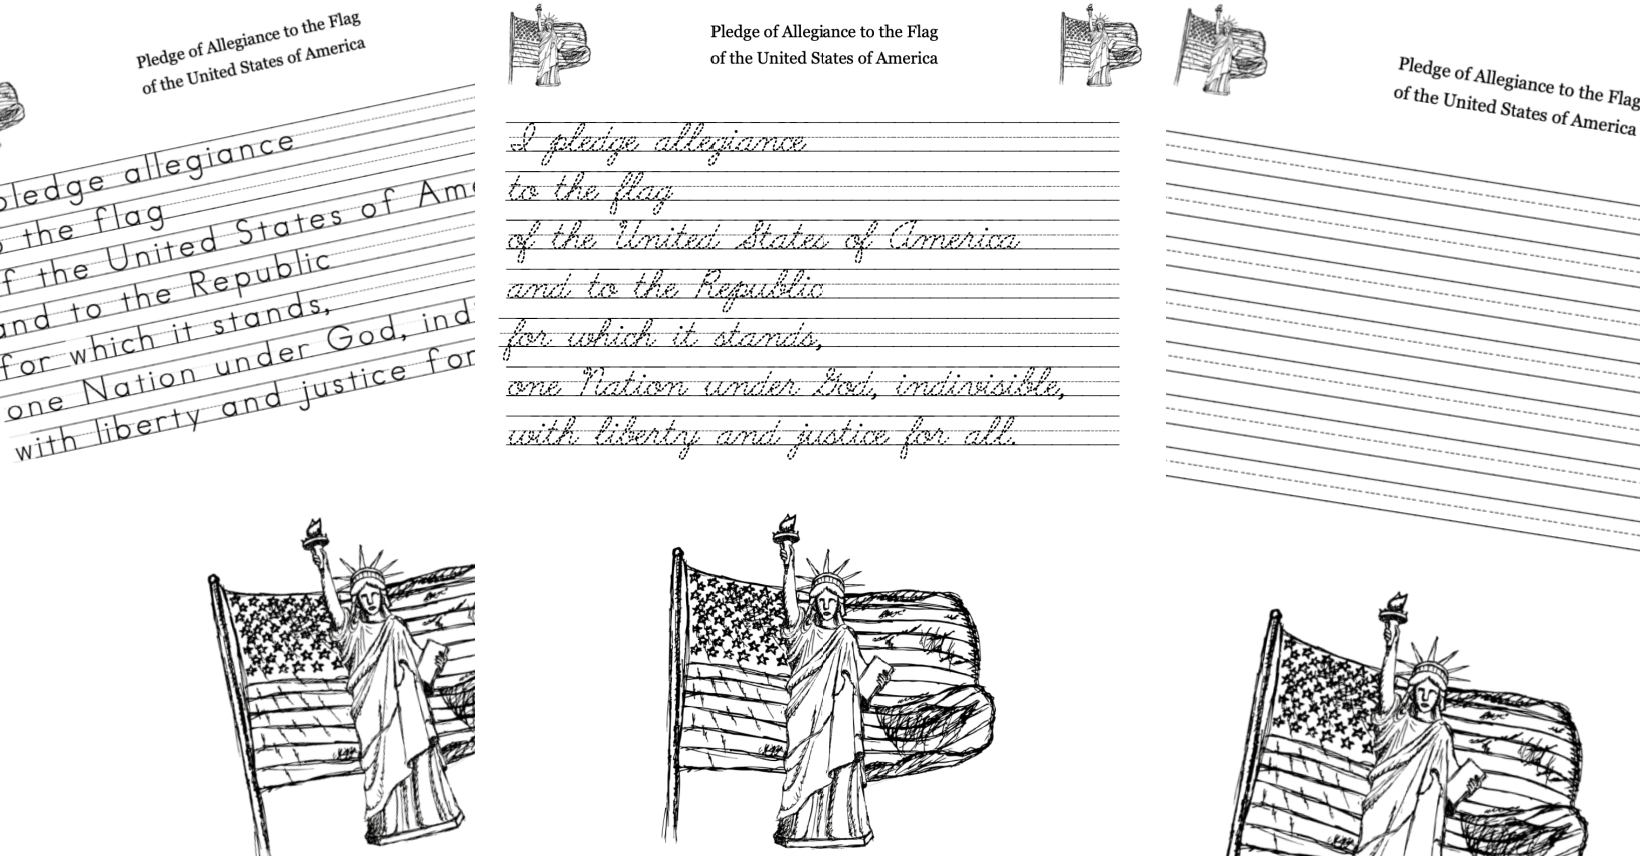 Pledge of Allegiance to the Flag
of the United States of America
pledge allegiance
the flag
f the United States of Am
and to the Republic
for which it stands,
one Nation under God, ind
with liberty and justice for
Pledge of Allegiance to the Flag
of the United States of America
I pledge allegiance
to the flag
of the United States of America
and to the Republic
for which it stands,
one Nation under God, indivisible,
with liberty and justice for all.
Pledge of Allegiance to the Flag
of the United States of America